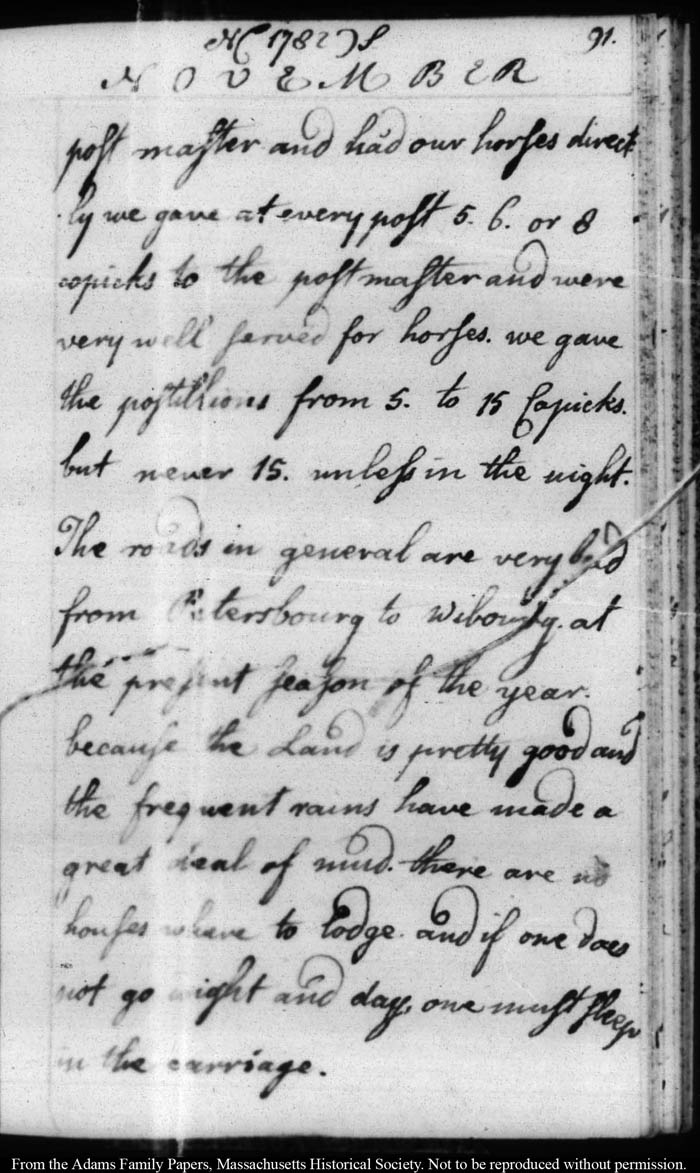 N( 1782 )S 91.
NOVEMBER
post master and had our horses direct
ly we gave at every post 5. 6. or 8
copicks to the postmaster and were
very well served for horses. we gave
the postillions from 5. to 15 Copicks.
but never 15. unless in the night.
The roads in general are very bad
from Petersbourg to Wibourg. at
the present season of the year.
because the Land is pretty good and
the frequent rains have made a
great deal of mud. there are no
houses where to lodge. and if one does
not go night and day, one must sleep
in the carriage.
From the Adams Family Papers, Massachusetts Historical Society. Not to be reproduced without permission